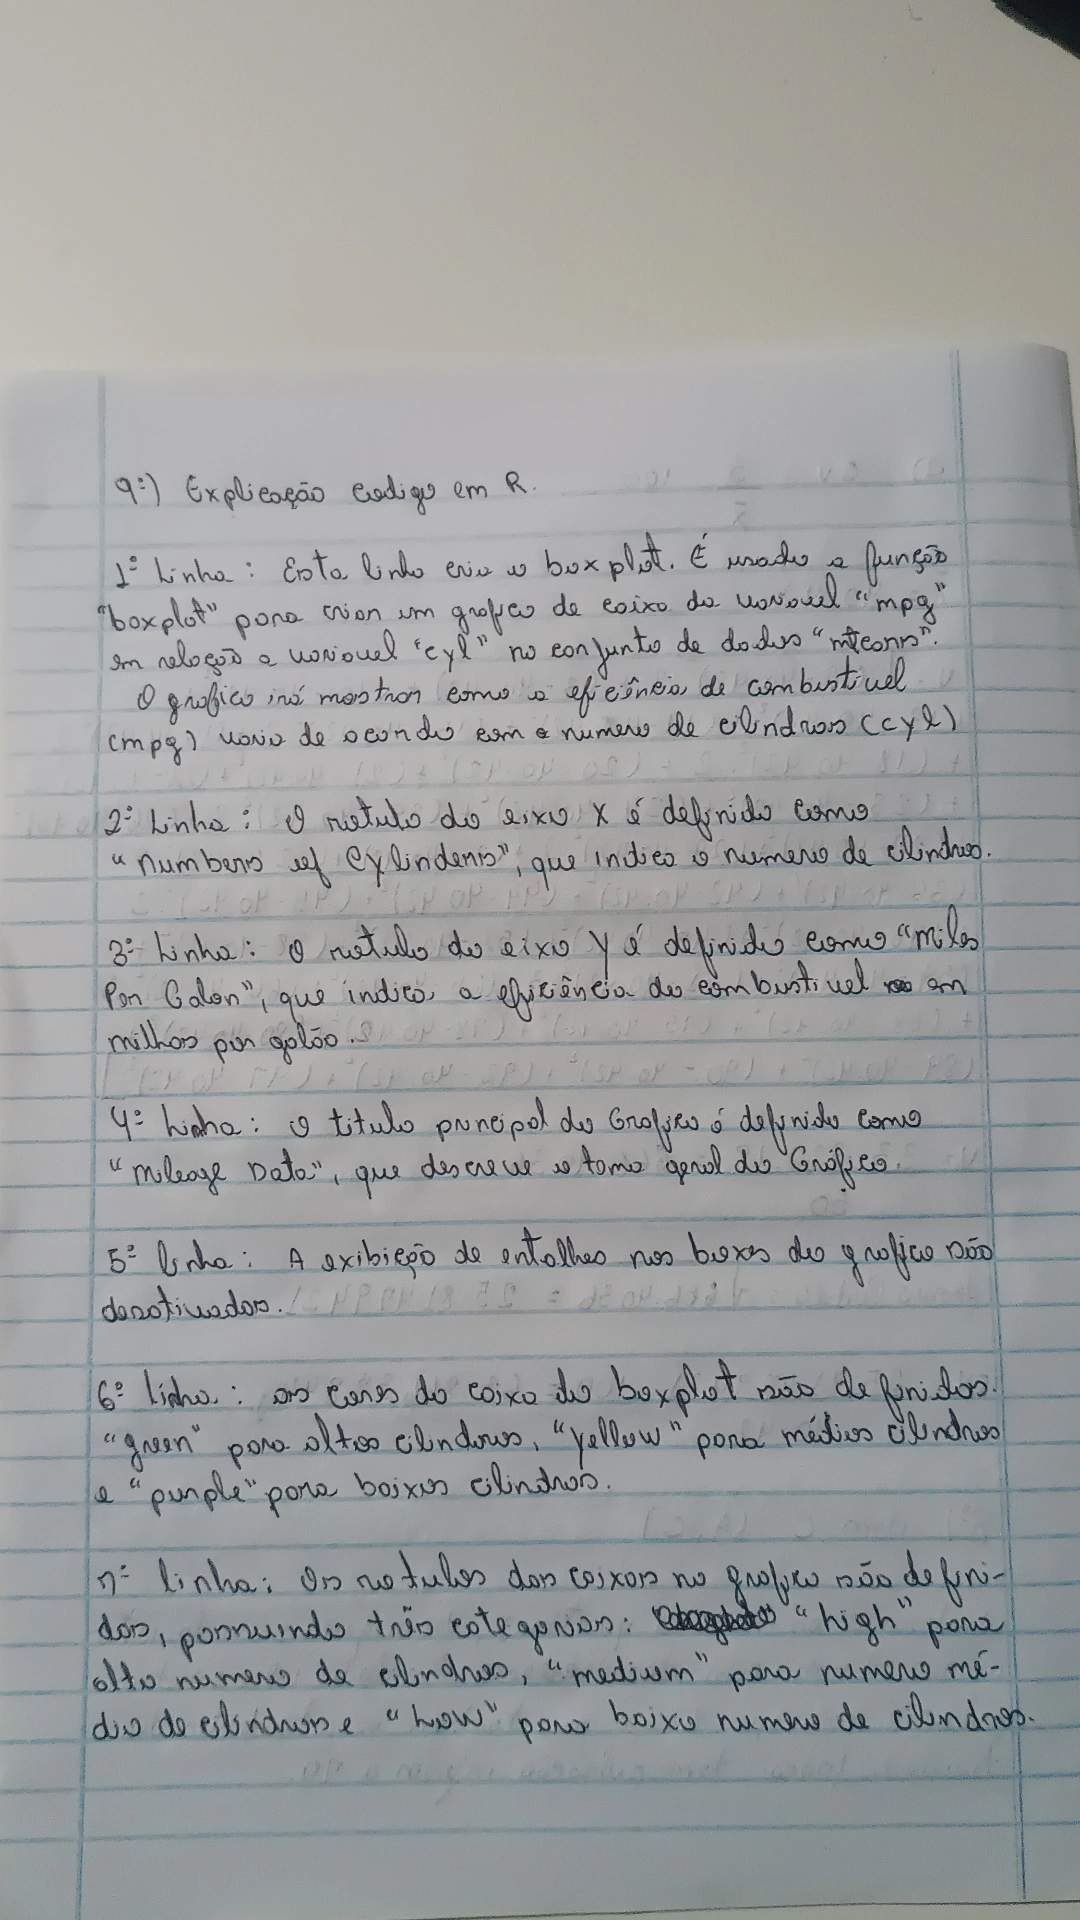 9º) Explicação codigo em R.
1º Linha: Esta linha cria o boxplot. É usado a função
"boxplot" para criar um grafico de caixa da variavel "mpg"
em relação a variavel "cyl" no conjunto de dados "mtcars".
O grafico irá mostrar como a eficiência de combustivel
(mpg) varia de acordo com o numero de cilindros (cyl)
2º Linha: O rotulo do eixo X é definido como
"Numbers of Cylinders", que indica o numero de cilindros.
3º Linha: O rotulo do eixo Y é definido como "Miles
Per Galon", que indica a eficiência do combustivel em
milhas por galão.
4º Linha: O titulo principal do Grafico é definido como
"Mileage Data", que descreve o tema geral do Gráfico.
5º linha: A exibição de entalhes nos boxes do grafico são
desativadas.
6º linha: as cores da caixa do boxplot são definidas.
"green" para altos cilindros, "yellow" para médios cilindros
e "purple" para baixos cilindros.
7º linha: Os rotulos das caixas no grafico são defini-
das, possuindo três categorias: "high" para
alto numero de cilindros, "medium" para numero mé-
dio de cilindros e "Low" para baixo numero de cilindros.